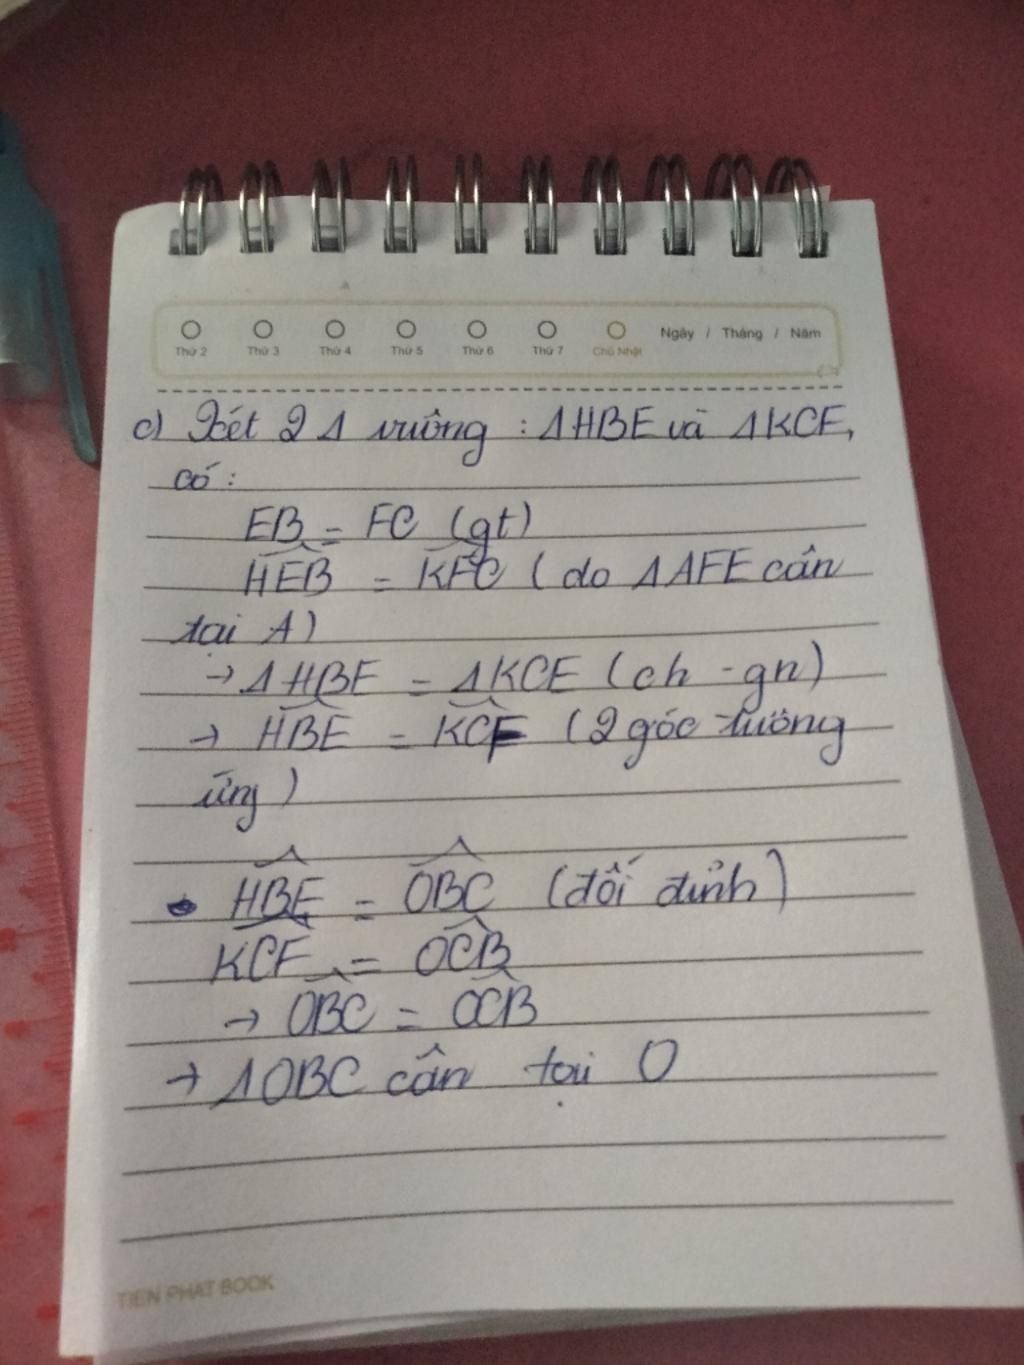 Thứ 2 Thứ 3 Thứ 4 Thứ 5 Thứ 6 Thứ 7 Chủ Nhật Ngày / Tháng / Năm
c) Xét 2 Δ vuông : ΔHBE và ΔKCF,
có :
EB = FC (gt)
HEB = KFC ( do ΔAFE cân
tại A)
→ ΔHBE = ΔKCF (ch - gn)
→ HBE = KCF (2 góc tương
ứng )
HBE = OBC (đối đỉnh)
KCF = OCB
→ OBC = OCB
→ ΔOBC cân tại O
TIEN PHAT BOOK